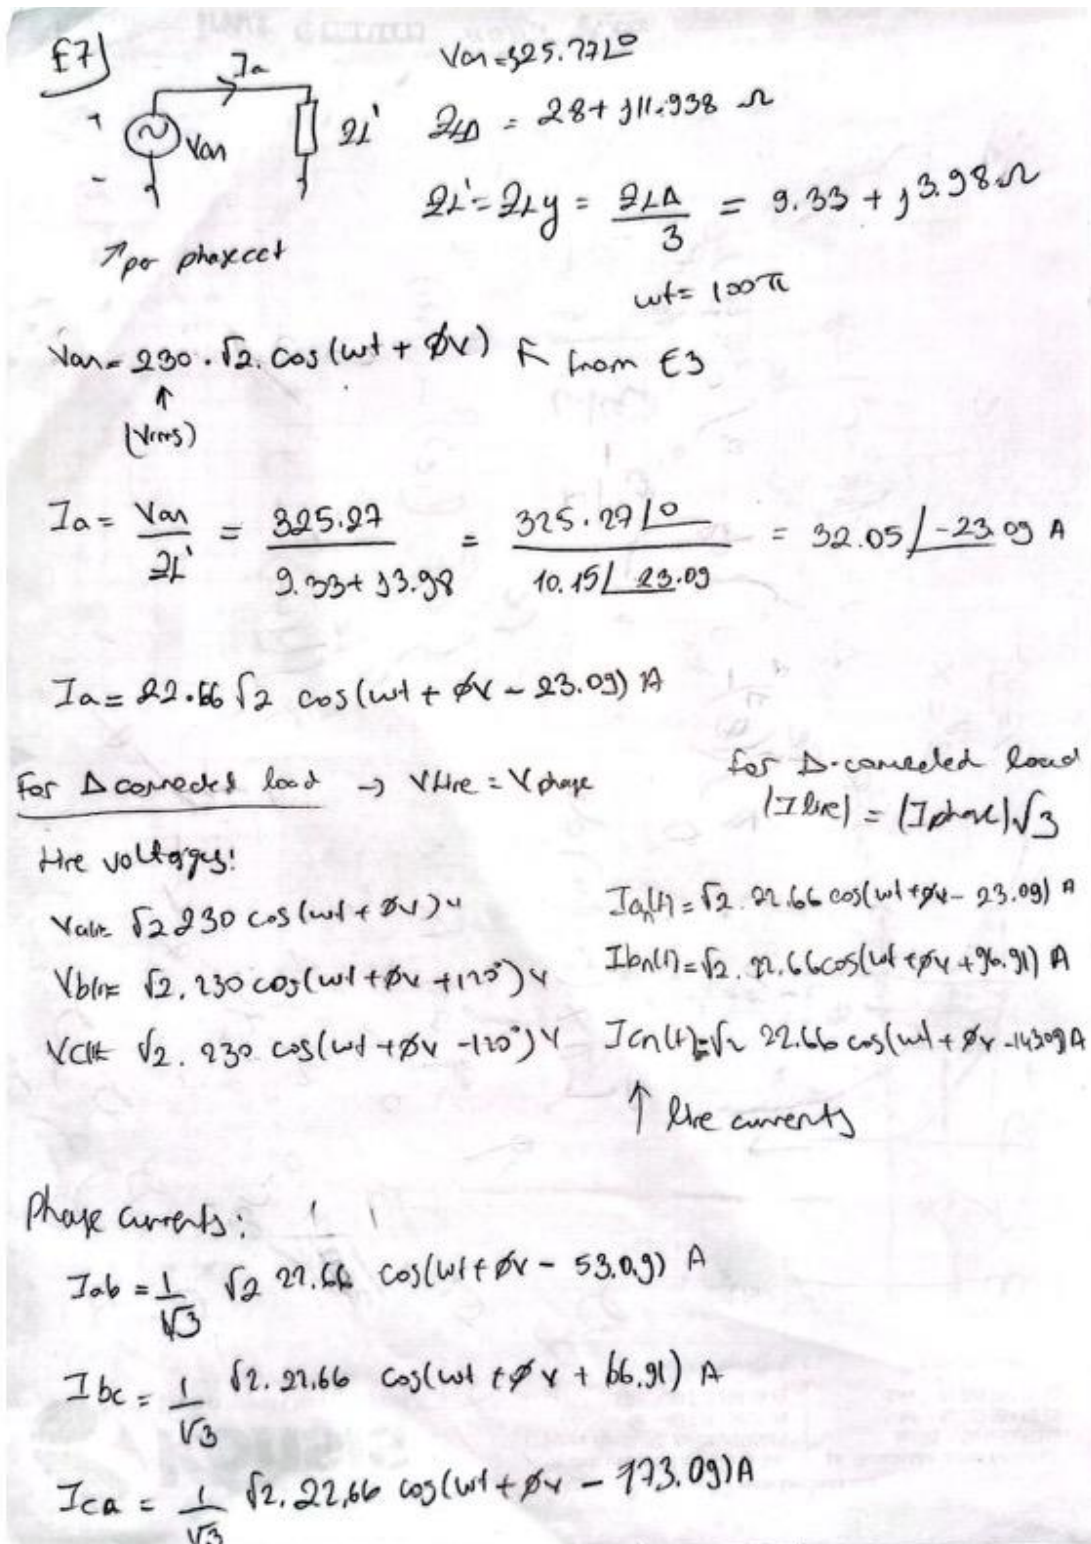 E7)
Ia
Van = 325.27∠0
Van
ZL'
+
-
ZLΔ = 28 + j11.938 Ω
ZL' = ZLy = ZLΔ / 3 = 9.33 + j3.98 Ω
↗ per phase cct
wt = 100π
Van = 230 · √2 . cos(wt + ØV) ↖ from E3
↑
(Vrms)
Ia = Van / ZL' = 325.27 / 9.33 + j3.98 = 325.27∠0 / 10.15∠23.09 = 32.05∠-23.09 A
Ia = 22.66 √2 cos(wt + ØV - 23.09) A
For Δ connected load → Vline = Vphase
for Δ-connected load
|Iline| = |Iphase|√3
line voltages:
√2 230 cos(wt + ØV) V
√2 . 230 cos(wt + ØV + 120°) V
√2 . 230 cos(wt + ØV - 120°) V
Ian(t) = √2 . 22.66 cos(wt + ØV - 23.09) A
Ibn(t) = √2 . 22.66 cos(wt + ØV + 96.91) A
Icn(t) = √2 22.66 cos(wt + ØV - 143.09) A
↑ line currents
Phase currents:
Iab = 1/√3 √2 22.66 cos(wt + ØV - 53.09) A
Ibc = 1/√3 √2 . 22.66 cos(wt + ØV + 66.91) A
Ica = 1/√3 √2 . 22.66 cos(wt + ØV - 173.09) A